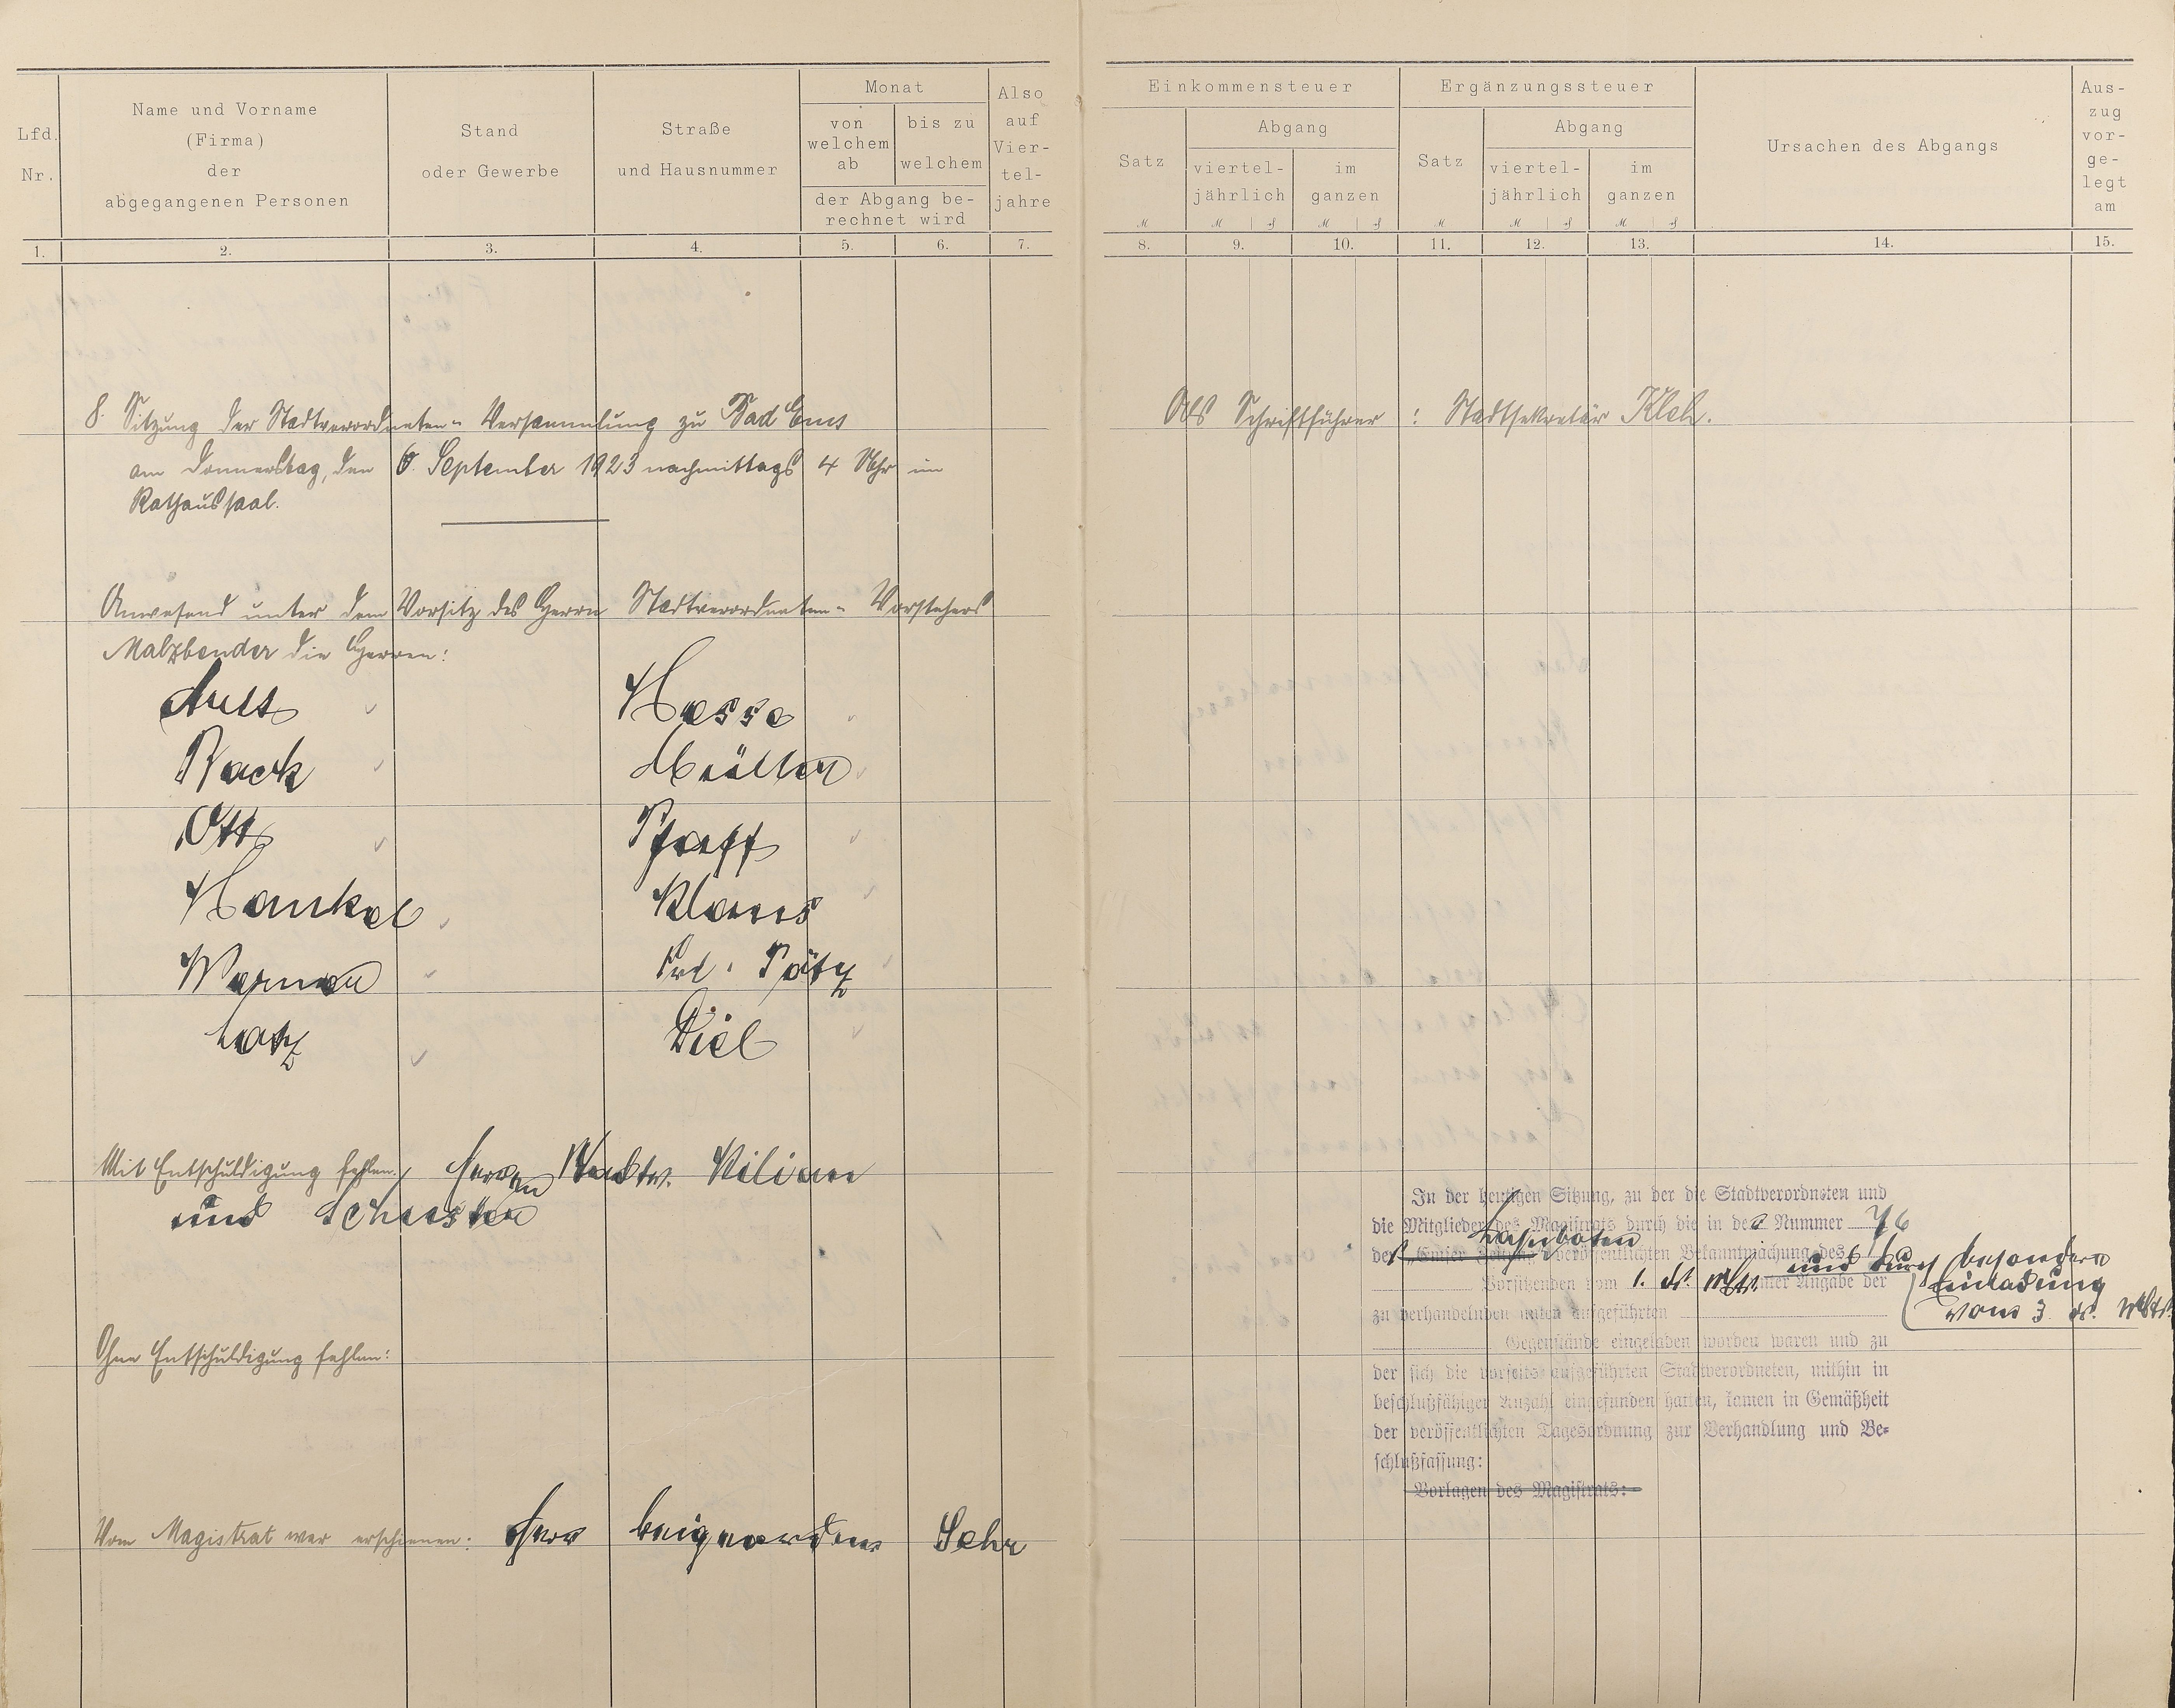 Lfd. Nr.
Name und Vorname
(Firma)
der
abgegangenen Personen
Stand
oder Gewerbe
Straße
und Hausnummer
Monat
von
welchem
ab
bis zu
welchem
der Abgang be-
rechnet wird
Also
auf
Vier-
tel-
jahre
1. 2. 3. 4. 5. 6. 7.
8. Sitzung der Stadtverordneten-Versammlung zu Bad Ems
am Donnerstag, den 6. September 1923 nachmittags 4 Uhr im
Rathaussaal.
Anwesend unter dem Vorsitz des Herrn Stadtverordneten-Vorstehers
Malzbender die Herren:
Hasse
Back
Müller
Ott
Pfaff
Hankel
Klaus
Werner
Frl. Pötz
Lotz
Diel
Mit Entschuldigung fehlen: Herren Stadtv. Kilian
und Schuster
Ohne Entschuldigung fehlen:
Vom Magistrat war erschienen: Herr Beigeordn.
Einkommensteuer
Satz
Abgang
viertel-
jährlich
im
ganzen
Ergänzungssteuer
Satz
Abgang
viertel-
jährlich
im
ganzen
Ursachen des Abgangs
Aus-
zug
vor-
ge-
legt
am
8. 9. 10. 11. 12. 13. 14. 15.
Als Schriftführer: Stadtsekretär
In der heutigen Sitzung, zu der die Stadtverordneten und
die Mitglieder des Magistrats durch die in der Nummer 76
Lahnboten
des "Emser Zeitung" veröffentlichten Bekanntmachung des
Vorsitzenden vom 1. ds. Mts. unter Angabe der
und durch besondere
Einladung
vom 3. ds. Mts.
zu verhandelnden unten aufgeführten
Gegenstände eingeladen worden waren und zu
der sich die vorseits aufgeführten Stadtverordneten, mithin in
beschlußfähiger Anzahl eingefunden hatten, kamen in Gemäßheit
der veröffentlichten Tagesordnung zur Verhandlung und Be-
schlußfassung:
Vorlagen des Magistrats: